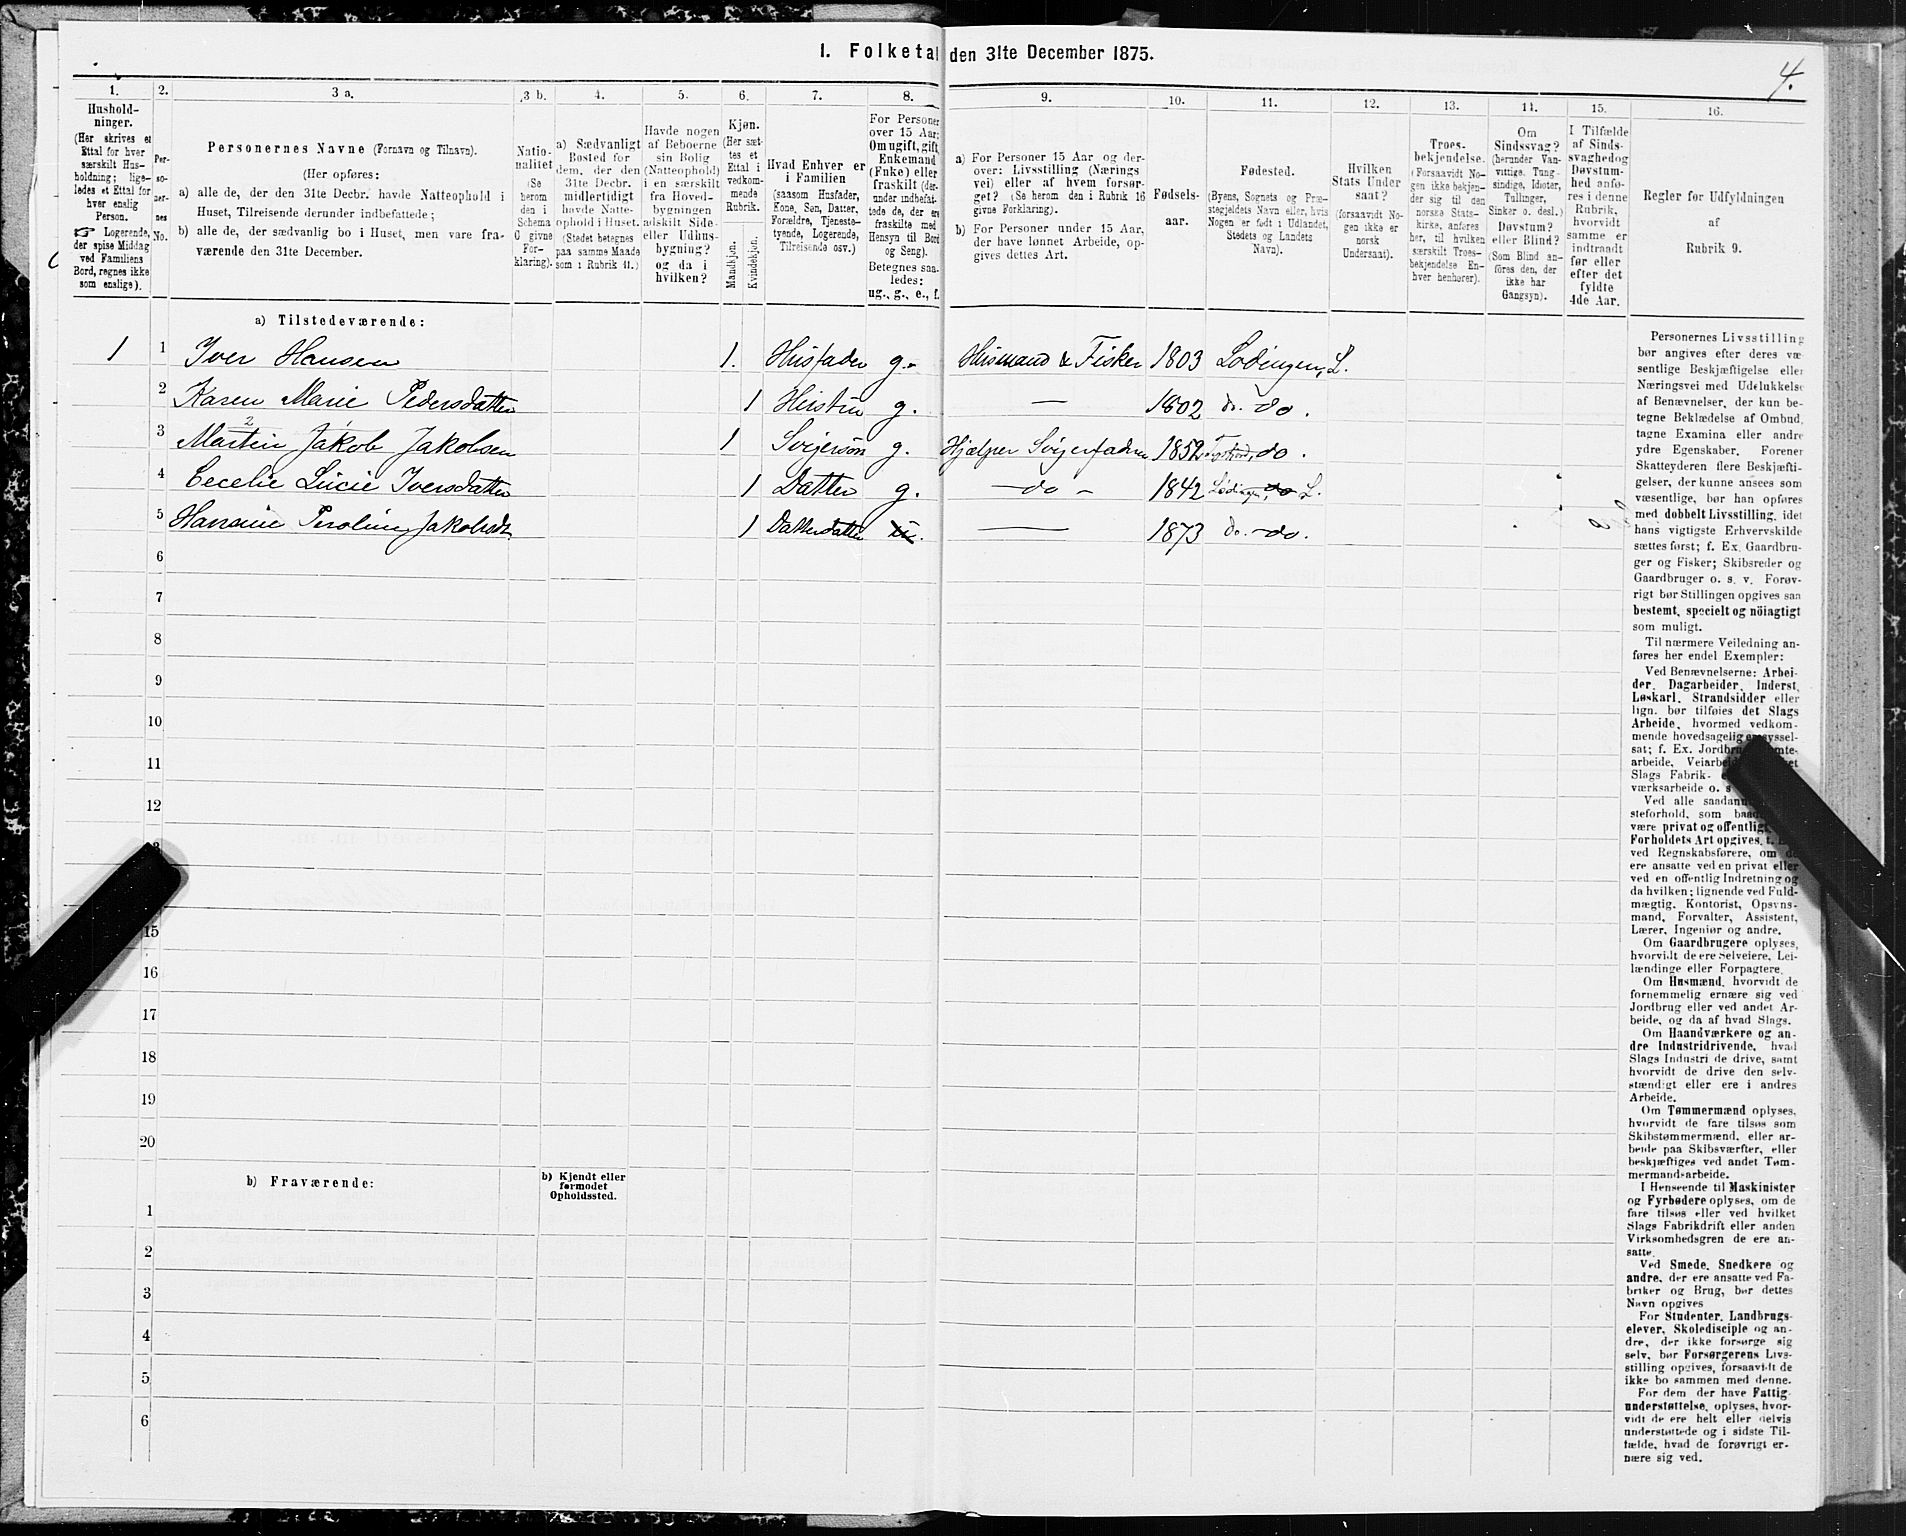 1. Folketal den 31te December 1875.
4.
1.
Hushold-
ninger.
(Her skrives et
Ettal for hver
særskilt Hus-
holdning; lige-
ledes et Ettal for
hver enslig
Person.
☞ Logerende,
der spise Middag
ved Familiens
Bord, regnes ikke
som enslige).
2.
Per-
so-
ner-
nes
No.
3 a.
Personernes Navne (Fornavn og Tilnavn).
(Her opføres:
a) alle de, der den 31te Decbr. havde Natteophold i
Huset, Tilreisende derunder indbefattede;
b) alle de, der sædvanlig bo i Huset, men vare fra-
værende den 31te December.
3 b.
Natio-
nalitet
(Se
herom
den i
Schema
C givne
For-
klaring).
4.
a) Sædvanligt
Bosted for
dem, der den
31te Decbr.
midlertidigt
havde Natte-
ophold i Huset.
(Stedet betegnes
paa samme Maade
som i Rubrik 11.)
5.
Havde nogen
af Beboerne
sin Bolig
(Natteophold)
i en særskilt
fra Hoved-
bygningen
adskilt Side-
eller Udhus-
bygning?
og da i
hvilken?
6.
Kjøn.
(Her sæt-
tes et
Ettal i
vedkom-
mende
Rubrik.
Mandkjøn.
Kvindekjøn.
7.
Hvad Enhver er
i Familien
(saasom Husfader,
Kone, Søn, Datter,
Forældre, Tjeneste-
tyende, Logerende,
Tilreisende osv.)
8.
For Personer
over 15 Aar:
Om ugift, gift,
Enkemand
(Enke) eller
fraskilt (der-
under indbefat-
tede de, der ere
fraskilte med
Hensyn til Bord
og Seng).
Betegnes saa-
ledes:
ug., g., e., f.
9.
a) For Personer 15 Aar og der-
over: Livsstilling (Nærings
vei) eller af hvem forsør-
get? (Se herom den i Rubrik 16
givne Forklaring).
b) For Personer under 15 Aar,
der have lønnet Arbeide, op-
gives dettes Art.
10.
Fødsels-
aar.
11.
Fødested.
(Byens, Sognets og Præ-
stegjeldets Navn eller, hvis
Nogen er født i Udlandet,
Stedets og Landets
Navn).
12.
Hvilken
Stats Under
saat?
(forsaavidt No-
gen ikke er
norsk
Undersaat).
13.
Troes-
bekjendelse.
(Forsaavidt No-
gen ikke bekjen-
der sig til den
norske Stats-
kirke, anføres
her, til hvilken
særskilt Troes-
bekjendelse En-
hver henhører).
14.
Om
Sindssvag?
(herunder Van-
vittige, Tung-
sindige, Idioter,
Tullinger,
Sinker o. desl.)
Døvstum?
eller Blind?
(Som Blind an-
føres den, der
ikke har
Gangsyn).
15.
I Tilfælde
af Sinds-
svaghed og
Døvstum-
hed anfø-
res i denne
Rubrik,
hvorvidt
samme er
indtraadt
før eller
efter det
fyldte
4de Aar.
16.
Regler for Udfyldningen
af
Rubrik 9.
a) Tilstedeværende:
1 1 Iver Hansen 1. Husfader g. Husmand & Fisker 1803 Lodingen, L.
2 Karen Marie Pedersdatter 1 Hustru g. — 1802 do. do.
2
3 Martin Jakob Jakobsen 1 Svigersøn g. Hjælper Svigerfaderen 1852 do.
4 Cecelie Lucie Iversdatter 1 Datter g. — do — 1842 Lødingen, do L.
5 Jakobsdt. 1 Datterdatter — 1873 do. — do.
6
7
8
9
10
11
12
13
15
16
17
18
19
20
b) Fraværende:
b) Kjendt eller
formodet
Opholdssted.
1
2
3
4
5
6
Personernes Livsstilling
bør angives efter deres væ-
sentlige Beskjæftigelse eller
Næringsvei med Udelukkelse
af Benævnelser, der kun be-
tegne Beklædelse af Ombud,
tagne Examina eller andre
ydre Egenskaber. Forener
Skatteyderen flere Beskjæfti-
gelser, der kunne ansees som
væsentlige, bør han opføres
med dobbelt Livsstilling, idet
hans vigtigste Erhvervskilde
sættes først; f. Ex. Gaardbru-
ger og Fisker; Skibsreder og
Gaardbruger o. s. v. Forøv-
rigt bør Stillingen opgives saa
bestemt, specielt og nöiagtigt
som muligt.
Til nærmere Veiledning an-
føres her endel Exempler:
Ved Benævnelserne: Arbei-
der, Dagarbeider, Inderst,
Løskarl, Strandsidder eller
lign. bør tilføies det Slags
Arbeide, hvormed vedkom-
mende hovedsagelig er syssel-
sat; f. Ex. Jordbru
arbeide, Veiarbei
Slags Fabrik-
værksarbeide o. s
Ved alle saadan
steforhold, som baa
være privat og offentligt,
Forholdets Art opgives, f. E
ved Regnskabsførere, om de
ere ansatte ved en privat eller
ved en offentlig Indretning og
da hvilken; lignende ved Fuld-
mægtig, Kontorist, Opsyns-
mand, Forvalter, Assistent,
Lærer, Ingeniør og andre.
Om Gaardbrugere oplyses,
hvorvidt de ere Selveiere, Lei-
lændinge eller Forpagtere.
Om Husmænd, hvorvidt de
fornemmelig ernære sig ved
Jordbrug eller ved andet Ar-
beide, og da af hvad Slags.
Om Haandværkere og an-
dre Industridrivende, hvad
Slags Industri de drive, samt
hvorvidt de drive den selv-
stændigt eller ere i andres
Arbeide.
Om Tømmermænd oplyses,
hvorvidt de fare tilsøs som
Skibstømmermænd, eller ar-
beide paa Skibsværfter, eller
beskjæftiges ved andet Tøm-
mermandsarbeide.
I Henseende til Maskinister
og Fyrbødere oplyses, om de
fare tilsøs eller ved hvilket
Slags Fabrikdrift eller anden
Virksomhedsgren de ere an-
satte.
Ved Smede, Snedkere og
andre, der ere ansatte ved Fa-
briker og Brug, bør dettes
Navn opgives
For Studenter, Landbrugs-
elever, Skoledisciple og an-
dre, der ikke forsørge sig
selv, bør Forsørgerens Livs-
stilling opgives, forsaavidt de
ikke bo sammen med denne.
For dem der have Fattig
understøttelse, oplyses, hvor-
vidt de ere helt eller delvis
understøttede og i sidste Til-
fælde, hvad de forøvrigt er-
nære sig ved.